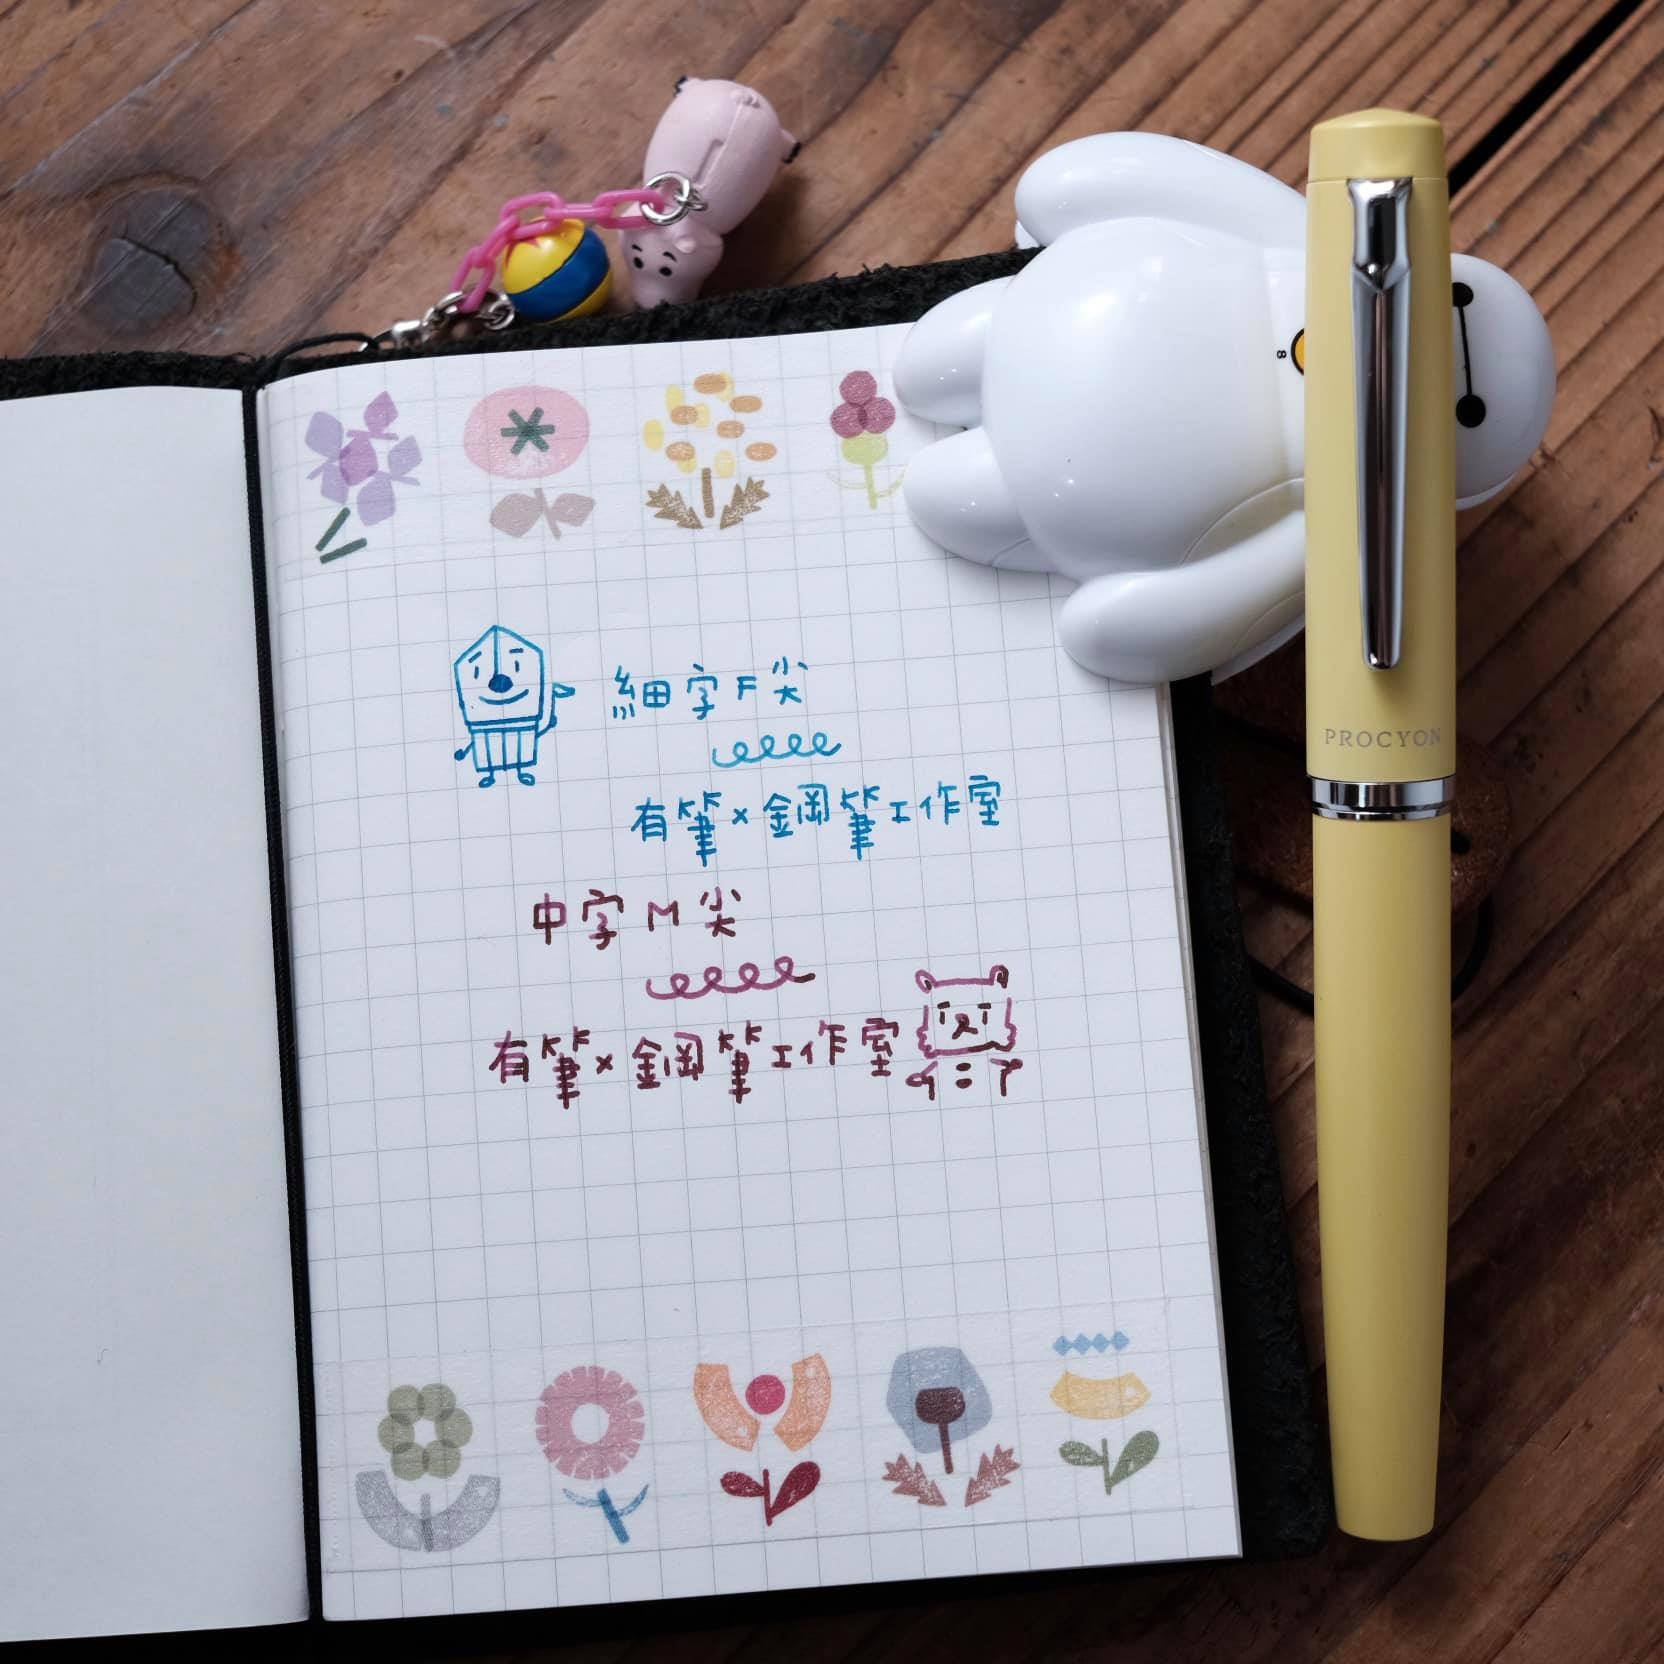 細字F尖
有筆×鋼筆工作室
中字M尖
有筆×鋼筆工作室
PROCYON
8